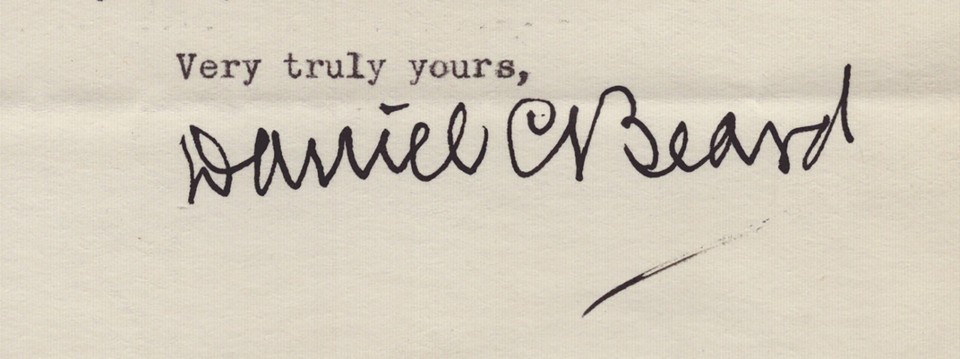 Very truly yours,
Daniel C Beard